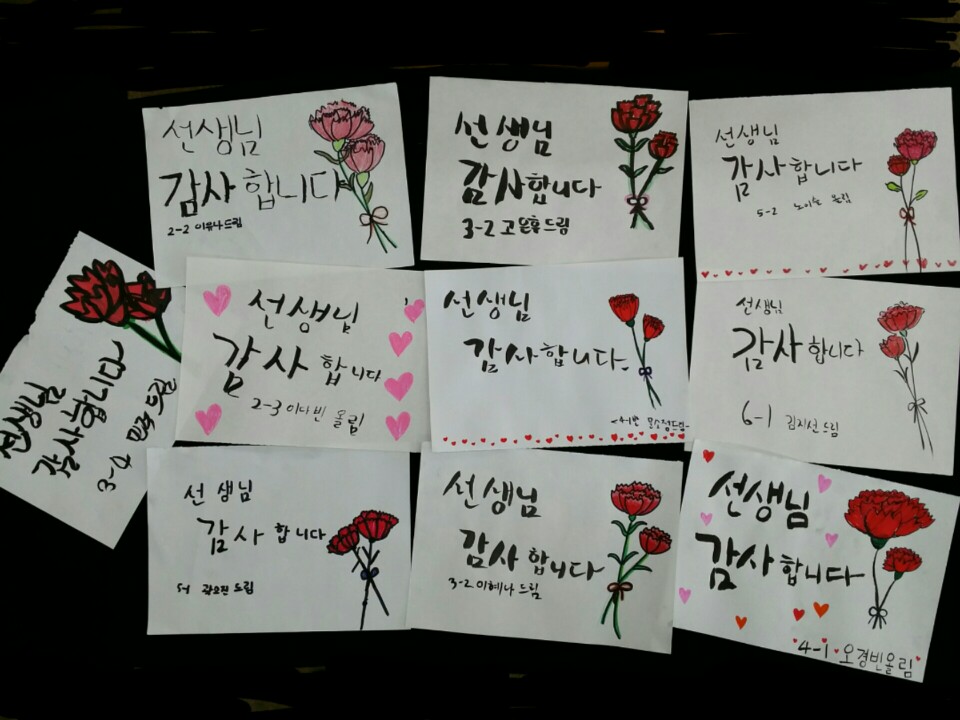 선생님
감사합니다
2-2 이유나드림
선생님
감사합니다
3-2 고은휴드림
선생님
감사합니다
5-2 노이슬 올림
선생님
감사합니다
3-4 드림
선생님
감사합니다
2-3 이나빈 올림
선생님
감사합니다.
-4-1반 문소정드림-
선생님
감사합니다
6-1 김지선드림
선생님
감사합니다
5-1 곽요진 드림
선생님
감사합니다
3-2 이혜나 드림
선생님
감사합니다
4-1 오경빈올림